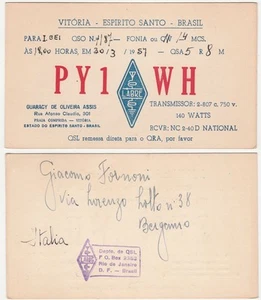 VITÓRIA - ESPIRITO SANTO - BRASIL
PARA I0EI QSO N. 1/87 FONIA MCS.
ÀS 1800 HORAS, EM 30/3/1957 QSA 5 R 8 M
PY1 LABRE WH
GUARACY DE OLIVEIRA ASSIS
Rua Afonso Claudio, 201
PRAIA COMPRIDA - VITÓRIA
ESTADO DO ESPIRITO SANTO - BRASIL
TRANSMISSOR: 2-807 c. 750 v.
140 WATTS
RCVR: NC 2-40 D NATIONAL
QSL remessa direta para o QRA, por favor
Giacomo Fornoni
Via Lorenzo Lotto n° 38
Bergamo
Italia
LABRE
Depto. de QSL
P O. Box 2353
Rio de Janeiro
D. F. - Brasil